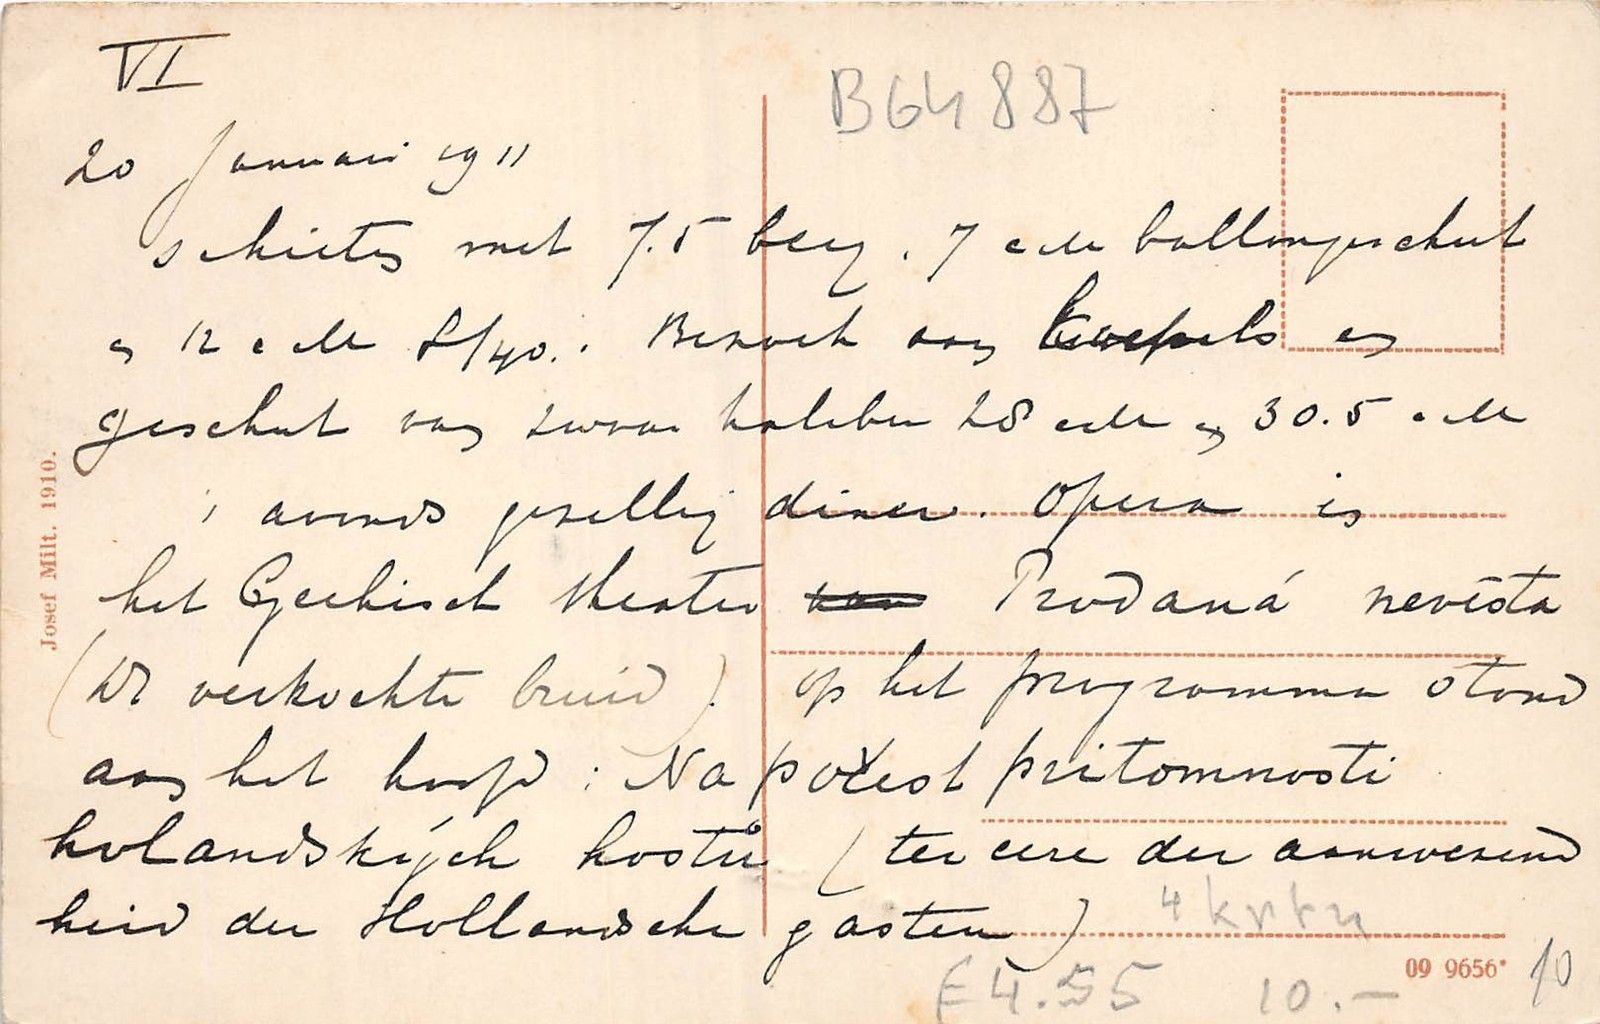 VI
B64887
20 Januari 1911
schieten met 7.5 berg. 7 cM ballongeschut
en 12 cM L/40. Bezoek aan en
geschut van zwaar kaliber 28 cM en 30.5 cM
's avonds gezellig diner. Opera in
het Czechisch theater Prodaná nevěsta
(De verkochte bruid). op het programma stond
aan het hoofd: Na počest přítomnosti
holandských hostů (ter eere der aanwezend
heid der Hollandsche gasten)
Josef Milt. 1910.
09 9656*
£4.55 10.-
10